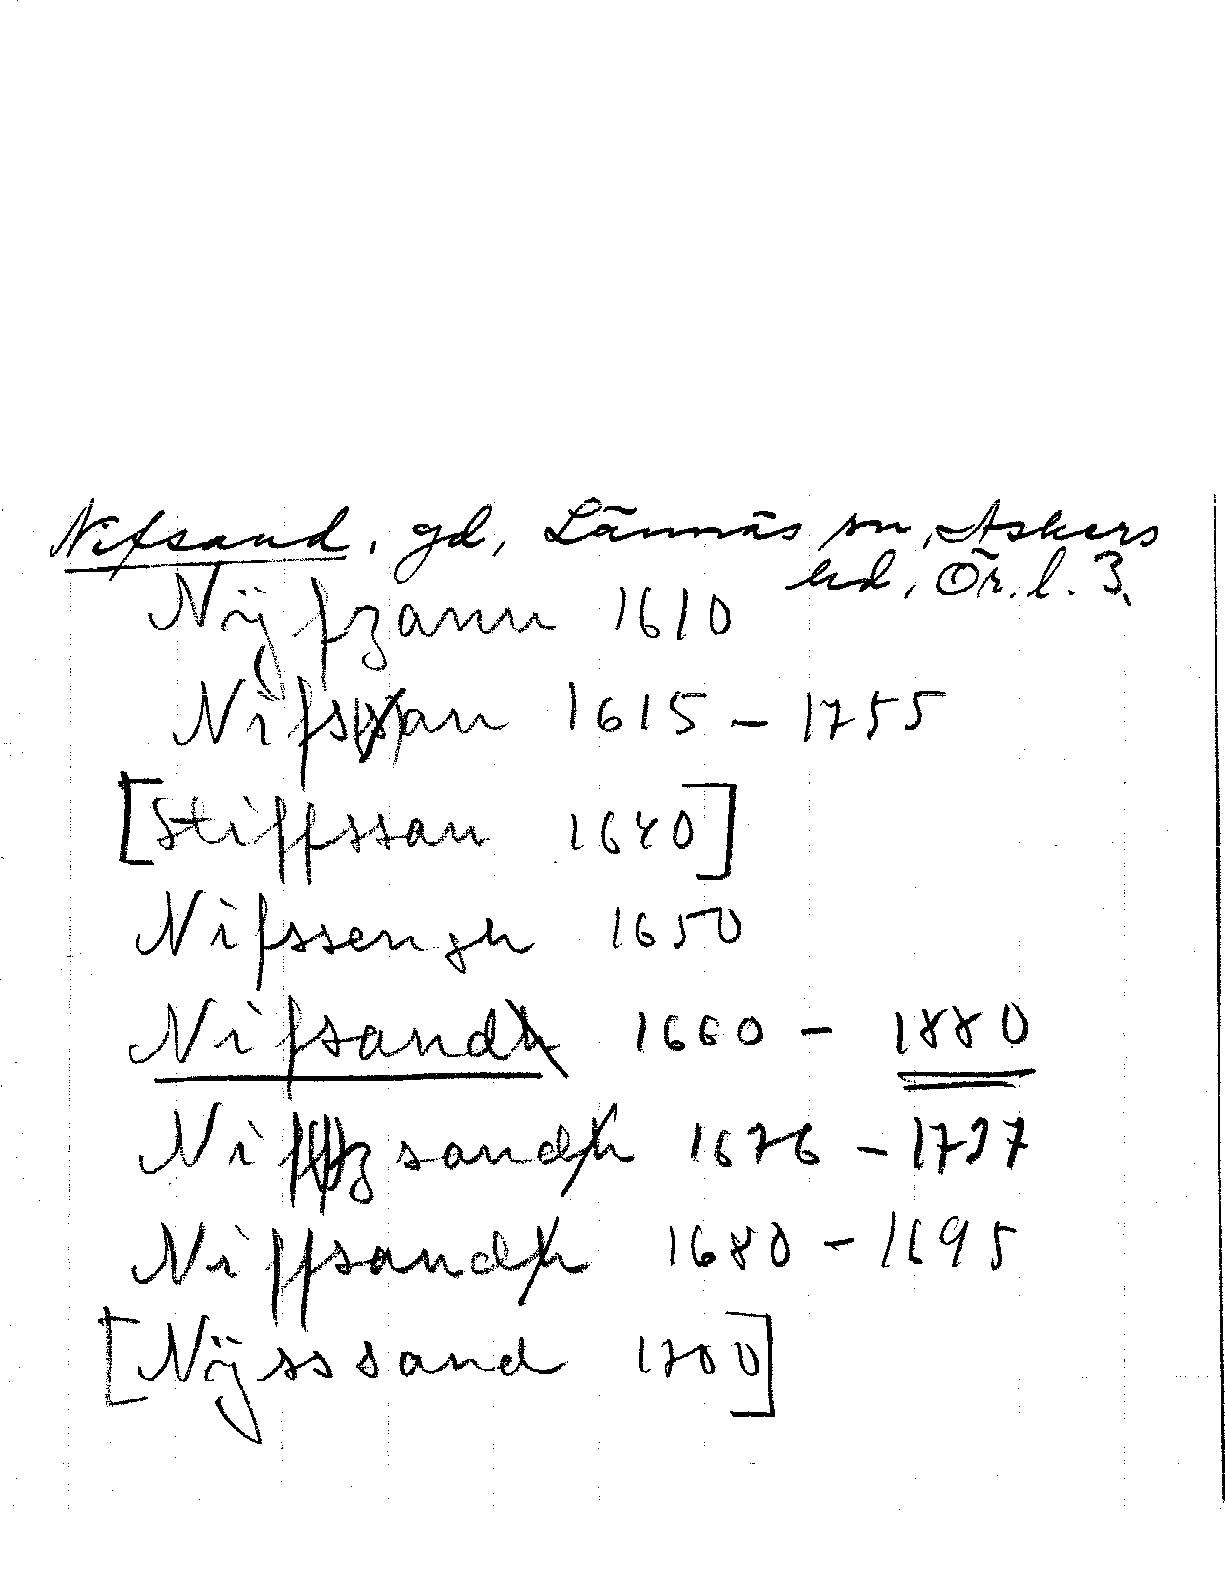 Nifsand, gd, Lännäs sn, Askers
hd, Ör. l. 3.
Nÿfzann 1610
Nifsan 1615 – 1755
[Stiffssan 1640]
Nifssengh 1650
Nifsand 1660 – 1880
sandh 1676 – 1737
Niffsandh 1680 – 1695
[Nÿsssand 1700]